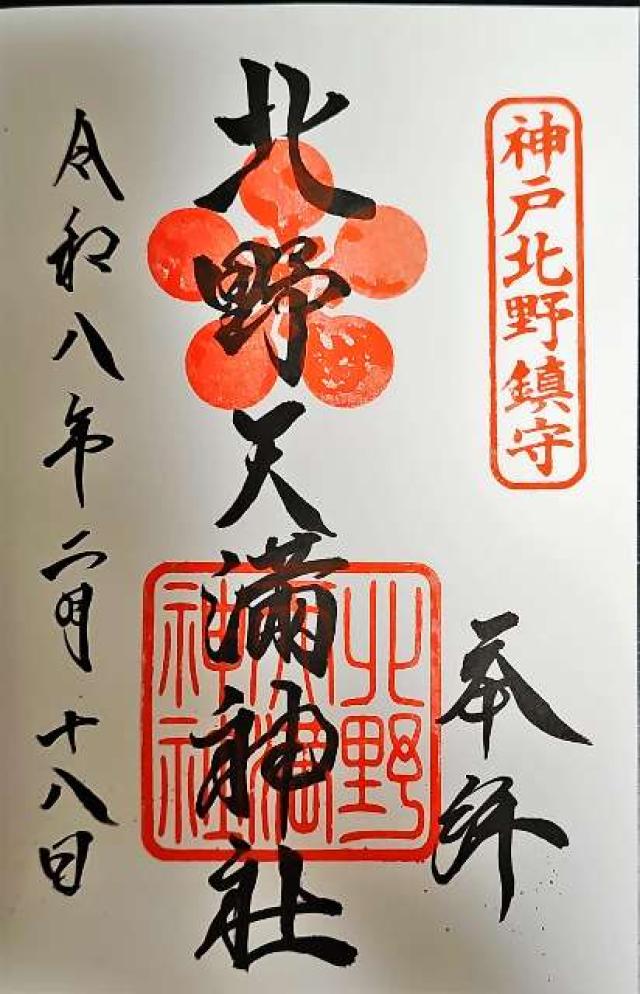 神戸北野鎮守
奉拝
北野天満神社
北野
天満
神社
令和八年二月十八日